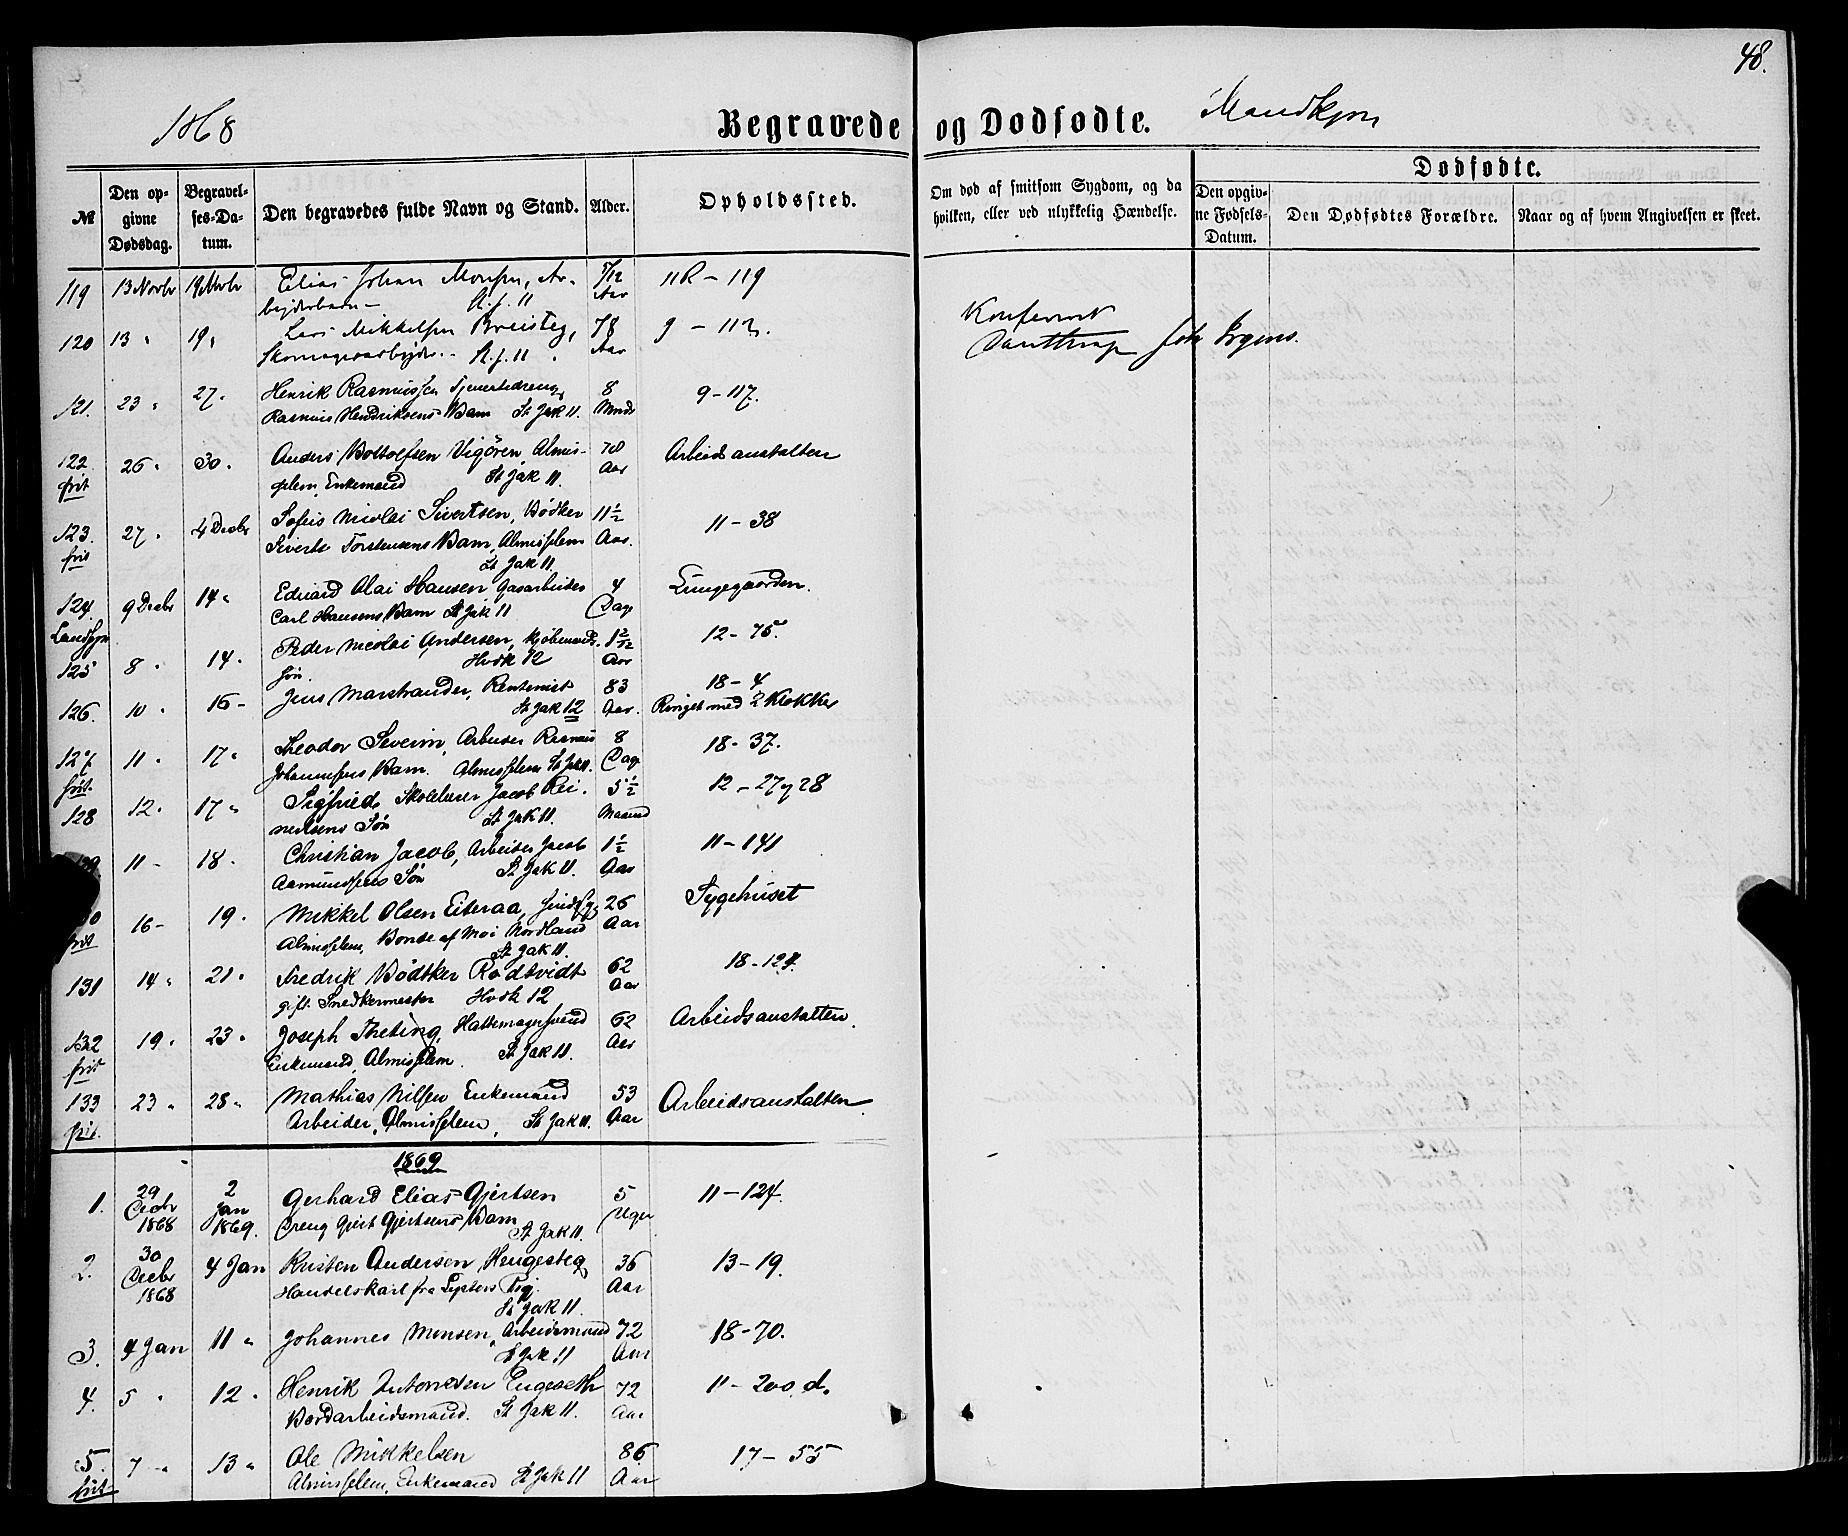 48.
1868 Begravede og Dødfødte. Mandkjøn
№ Den opgivne Dødsdag. Begravelses-Datum. Den begravedes fulde Navn og Stand. Alder. Opholdssted. Om død af smitsom Sygdom, og da hvilken, eller ved ulykkelig Hændelse. Dødfødte. Den opgivne Fødsels-Datum. Den Dødfødtes Forældre. Naar og af hvem Angivelsen er skeet.
119 13 Novbr 19 Novbr Elias Johan Monsen, Ar- 5/12 Aar 11R - 119
bejderbarn
120 13 " 19 " Lars Mikkelsen Breisteg, 78 Aar 9 - 112.
Skomagerarbejder
Konfereret
121. 23 " 27. Henrik Rasmussen 8 Mnds 9-117.
Rasmus Hendriksens Barn St Jak 11.
122. frit 26 " 30. Anders Bottolfsen Vigören, Almis- 78 Aar Arbeidsanstalten
selem, Enkemand St Jak 11.
123. frit 27 " 4 Decbr Sofus Nicolai Sivertsen, Bödker 11½ Aar. 11-38
Siverts Torstensens Barn, Almisselem
St Jak 11.
124. Landsogn 9 Decbr 14 " Edvard Olai Hansen Gasarbeider 4 Dage Lungegaarden.
Carl Hansens Barn St Jak 11
125 8 " 14. Peder Nicolai Andersen, Kjøbmands 1 2/12 Aar 12-75.
Søn. Hosk 12
126. 10 " 16 - Jens Marstrander, Rentenist 83 Aar. 18-4
St Jak 12 Ringet med 2 Klokker
127. frit. 11 " 17 " Theodor Severin, Arbeider Rasmus 8 Dage 18-37.
Johannesens Barn. Almisselem St Jak 11.
128 12. 17 " Sigfried Skolelærer Jacob Rei- 5½ Maaned 12-27 og 28
nertsens Søn St Jak 11.
129 11 - 18. Christian Jacob, Arbeider Jacob 1½ Aar 11-141
Aamundsens Søn St Jak 11.
130 frit 16 - 19. Mikkel Olsen Eiteraa, 26 Aar Sygehuset
Almisselem, Bonde af Moi Nordland
St Jak 11.
131 14 " 21 " Fredrik Bödtker Rodtvidt 62 Aar 18-124.
gift Snedkermester Hosk 12
132 frit 19 " 23 " Joseph Theting, Hattemagersvend 62 Aar Arbeidsanstalten.
Enkemand, Almisselem. St Jak 11.
133 frit. 23 " 28 " Mathias Nilsen Enkemand 53 Aar Arbeidsanstalten
Arbeider, Almisselem, St Jak 11.
1869
1. 29 Decbr 1868 2 Jan 1869. Gerhard Elias Gjertsen 5 Uger 11-124.
Dreng Gjert Gjertsens Barn St Jak 11.
2. 30 Decbr 1868 4 Jan Kristen Andersen Haugesteg 36 Aar 13-19.
Handelskarl fra
St Jak 11.
3. 4 Jan 11 " Johannes Monsen, Arbeidsmand 72 Aar 18-70.
St Jak 11
4. 5 " 12 " Henrik Antonesen Engeseth 72 Aar 11-200.d.
Bordarbeidsmand. St Jak 11.
5. frit 7 " 13 " Ole Mikkelsen 86 Aar 17-55
Almisselem, Enkemand St Jak 11